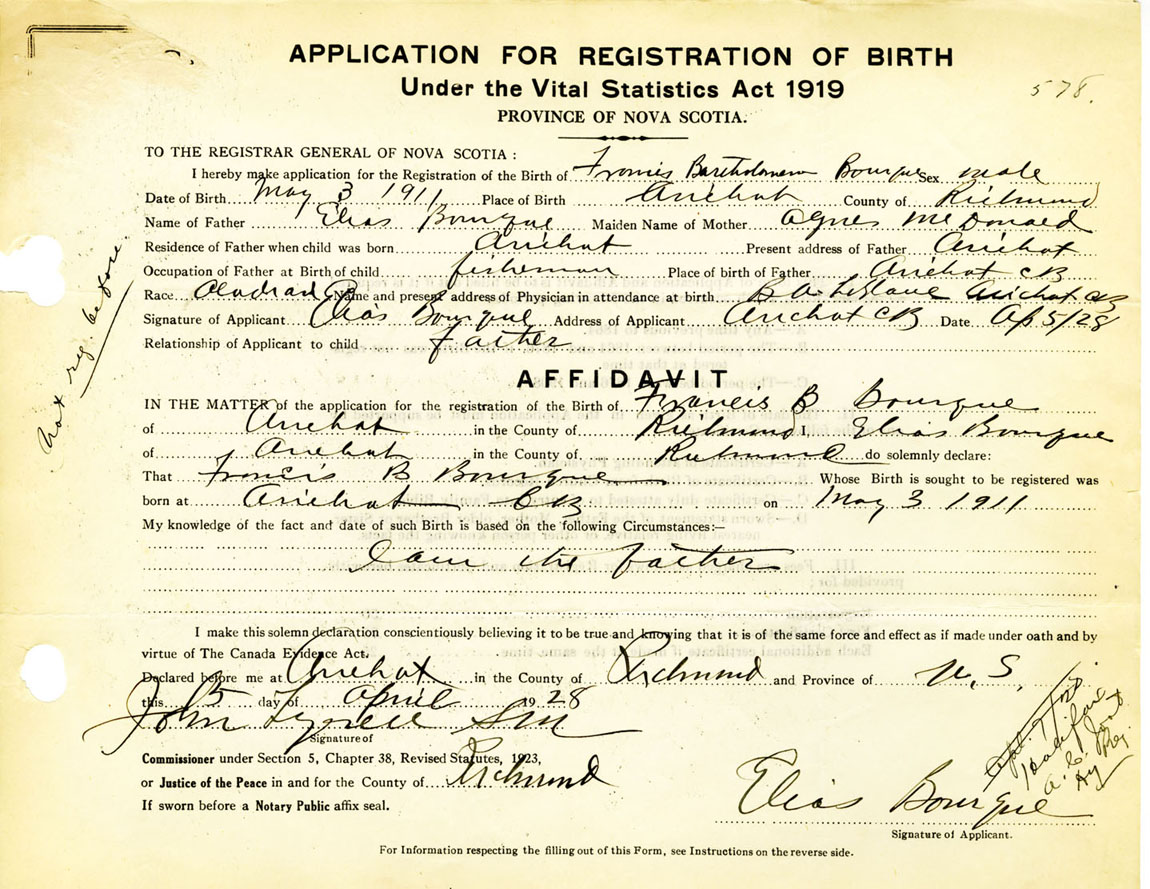 APPLICATION FOR REGISTRATION OF BIRTH
Under the Vital Statistics Act 1919
578.
PROVINCE OF NOVA SCOTIA.
TO THE REGISTRAR GENERAL OF NOVA SCOTIA :
I hereby make application for the Registration of the Birth of Francis Bartholomew Bourque Sex male
Date of Birth May 3 1911 Place of Birth Arichat County of Richmond
Name of Father Elias Bourque Maiden Name of Mother Agnes McDonald
Residence of Father when child was born Arichat Present address of Father Arichat
Occupation of Father at Birth of child fisherman Place of birth of Father Arichat CB
Race Name and present address of Physician in attendance at birth B A LeBlanc Arichat CB
Signature of Applicant Elias Bourque Address of Applicant Arichat CB Date Ap 5/28
Relationship of Applicant to child Father
Not reg. before.
AFFIDAVIT
IN THE MATTER of the application for the registration of the Birth of Francis B Bourque
of Arichat in the County of Richmond I, Elias Bourque
of Arichat in the County of Richmond do solemnly declare:
That Francis B Bourque Whose Birth is sought to be registered was
born at Arichat CB on May 3 1911
My knowledge of the fact and date of such Birth is based on the following Circumstances:—
I am the father
I make this solemn declaration conscientiously believing it to be true and knowing that it is of the same force and effect as if made under oath and by
virtue of The Canada Evidence Act.
Declared before me at Arichat in the County of Richmond and Province of N. S.
this 5 day of April 1928
John
Signature of
Commissioner under Section 5, Chapter 38, Revised Statutes, 1923,
or Justice of the Peace in and for the County of Richmond
If sworn before a Notary Public affix seal.
Halifax
Elias Bourque
Signature of Applicant.
For Information respecting the filling out of this Form, see Instructions on the reverse side.